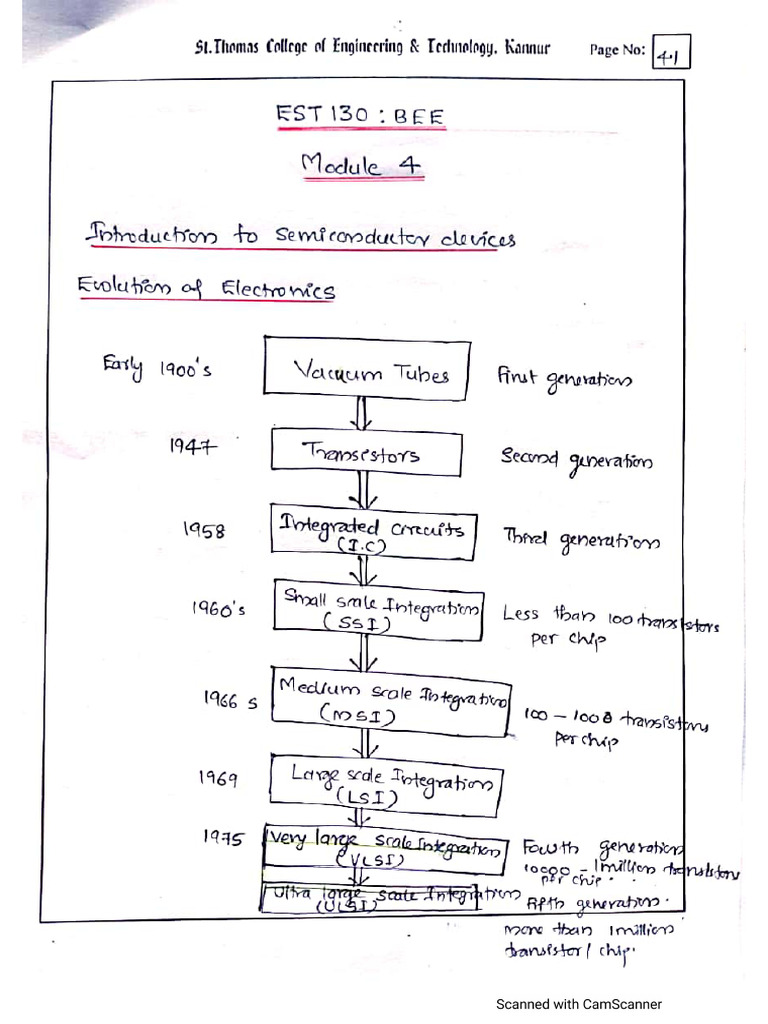 St.Thomas College of Engineering & Technology, Kannur Page No: 41
EST 130 : BEE
Module 4
Introduction to Semiconductor devices
Evolution of Electronics
Early 1900's Vacuum Tubes First generation
1947 Transistors Second generation
1958 Integrated circuits Third generation
(I.C)
1960's Small scale Integration Less than 100 transistors
(SSI) per chip
1966 s Medium scale Integration 100 - 1000 transistors
(MSI) per chip
1969 Large scale Integration
(LSI)
1975 Very large scale Integration Fourth generation
(VLSI) 10000 - 1million transistors
per chip.
Ultra large scale Integration Fifth generation.
(ULSI) more than 1million
transistor/ chip.
Scanned with CamScanner